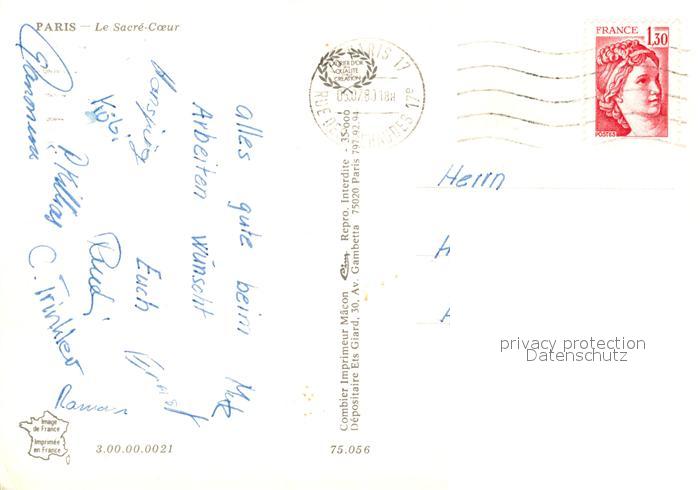 PARIS — Le Sacré-Cœur
alles gute beim
Arbeiten wünscht
Euch
Köbi
Rudi
C. Trinkler
Roman
Image
de France
Imprimée
en France
3.00.00.0021
Combier Imprimeur Mâcon Repro. Interdite - 35-000
Dépositaire Ets Giard, 30, Av. Gambetta 75020 Paris 797.92.94
75.056
PARIS 17
RUE DE
17e
FRANCE
1,30
POSTES
Herrn
privacy protection
Datenschutz